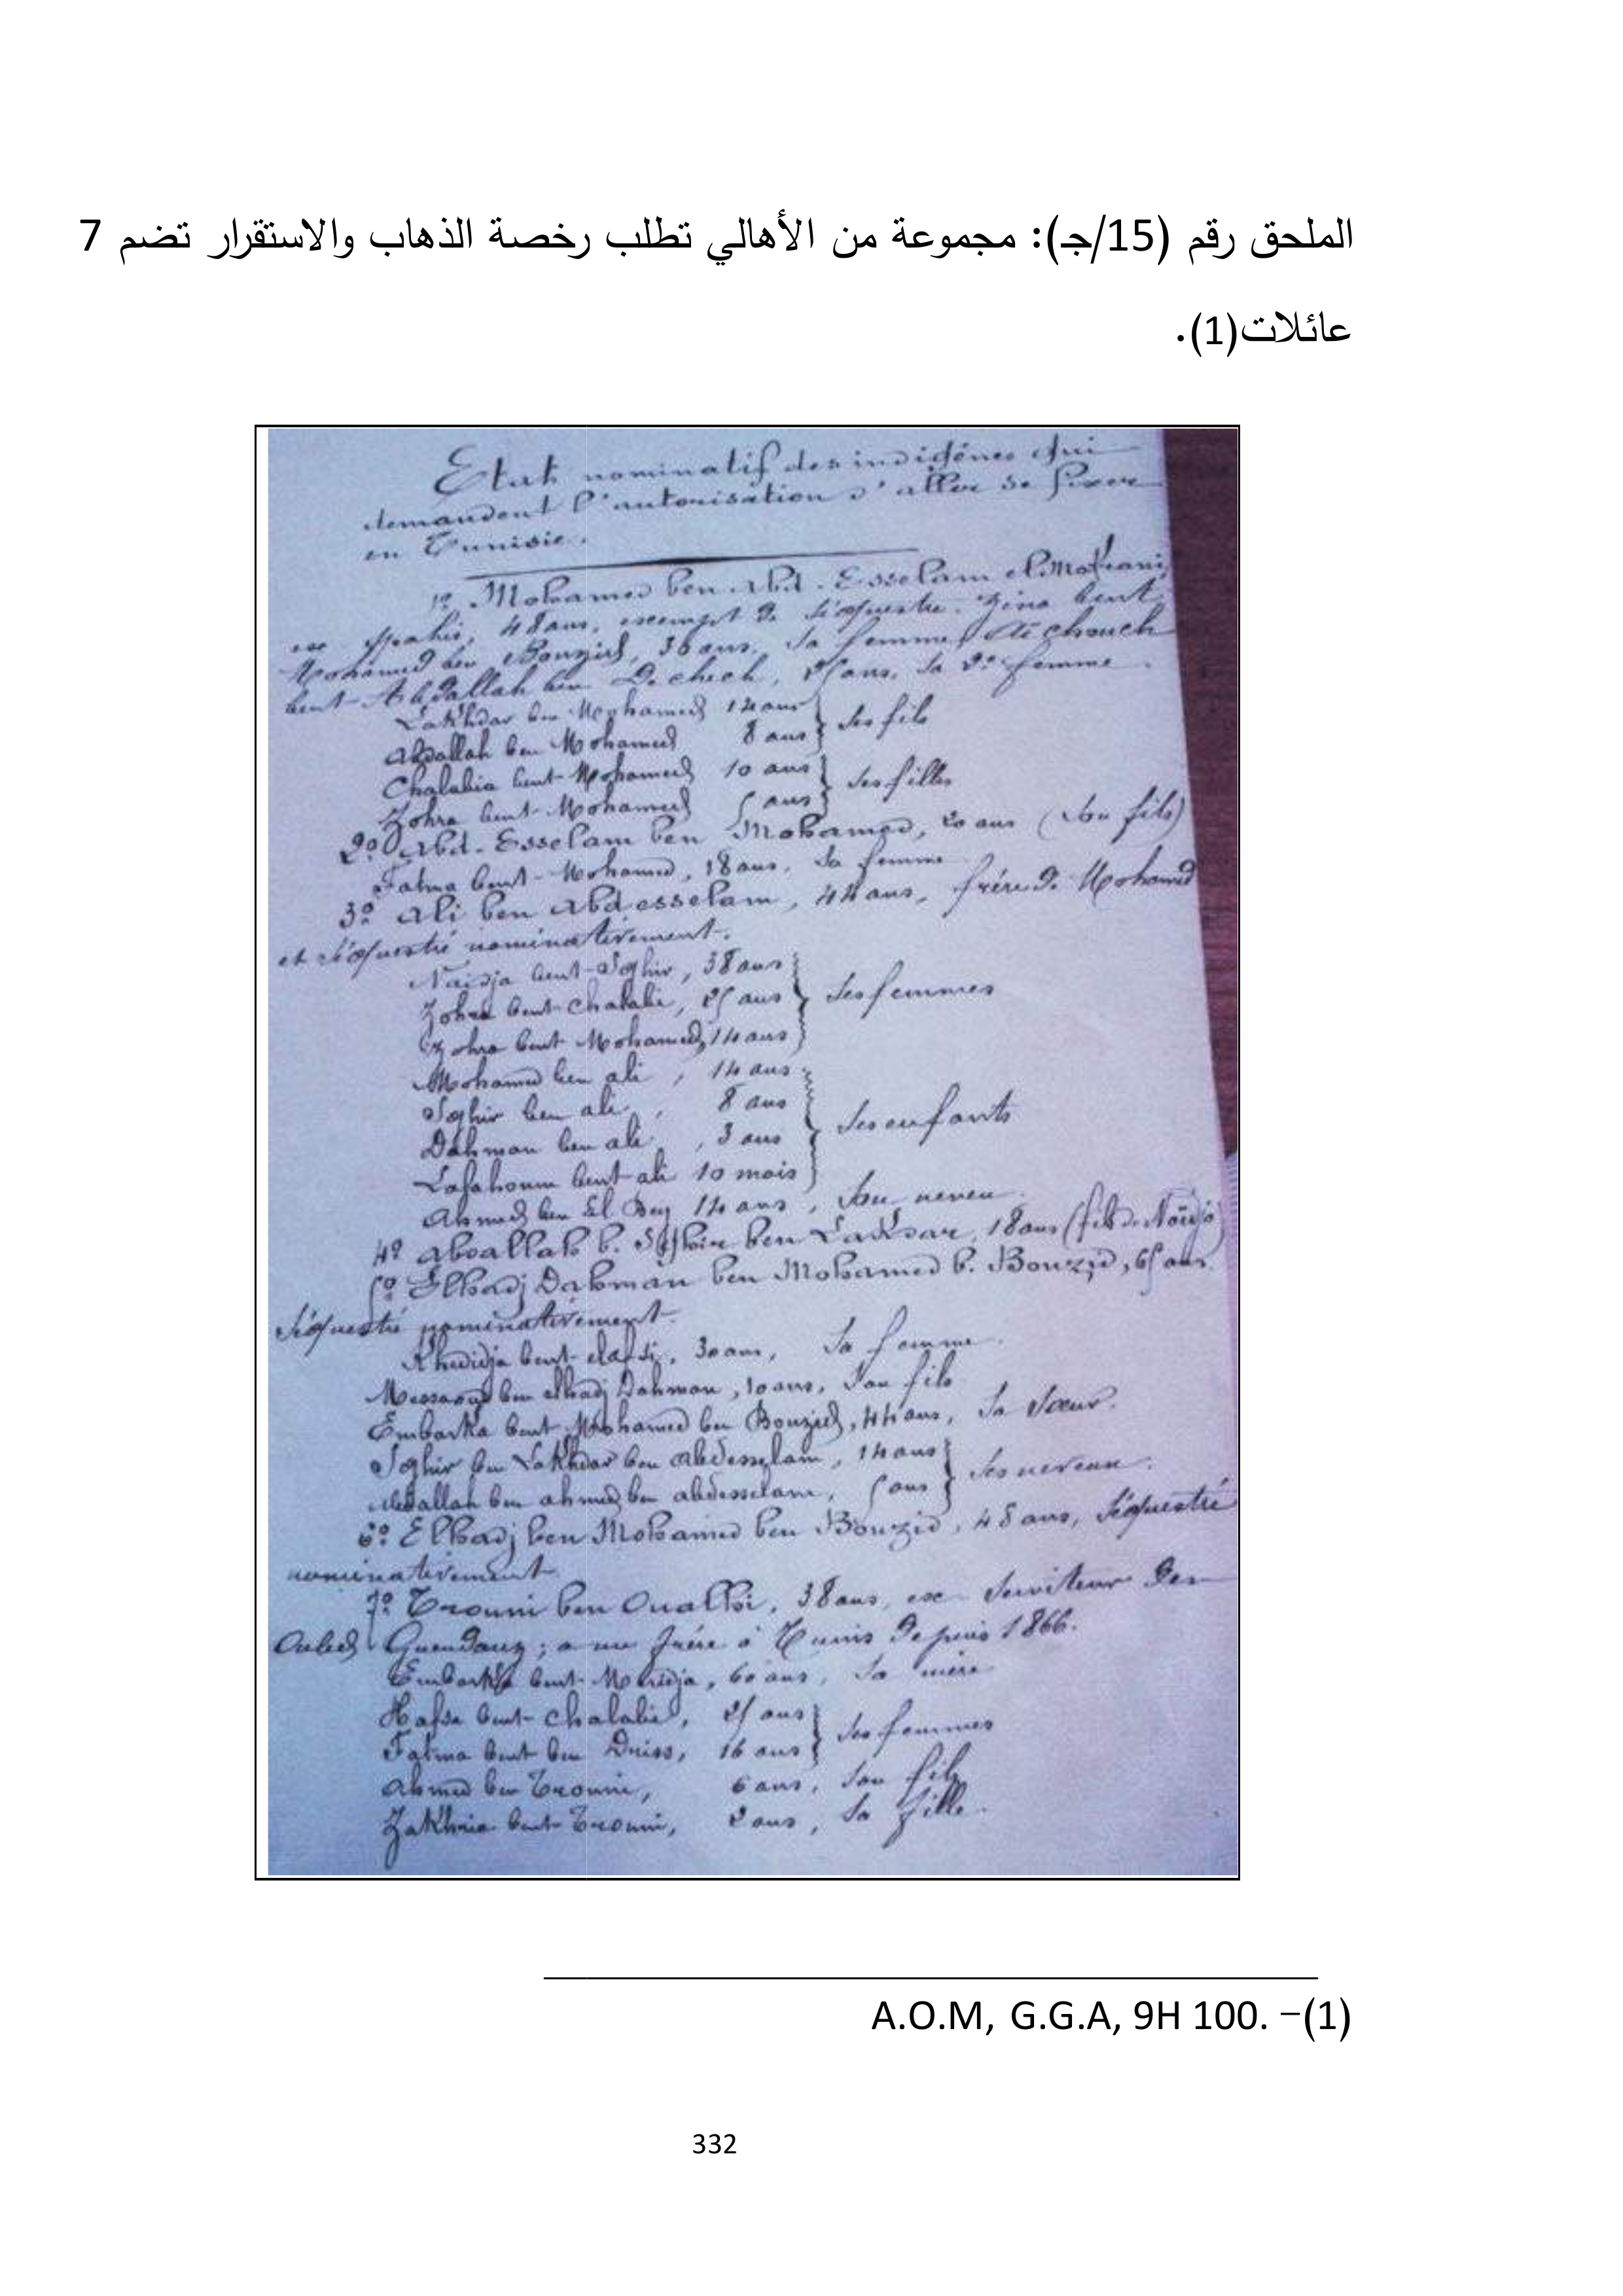 الملحق رقم (15/جـ): مجموعة من الأهالي تطلب رخصة الذهاب والاستقرار تضم 7
عائلات(1).
Etat nominatif des indigènes qui
demandent l'autorisation d'aller se fixer
en Tunisie.
1º Mohamed ben Abd-Esselam el Mokrani,
ex spahis, 48 ans, exempt de séquestre. Zina bent
Mohamed ben Bouzid, 36 ans, sa femme,
bent Abdallah ben Dechech, 25 ans, sa 2e femme.
Lakhdar ben Mohamed 14 ans
Abdallah ben Mohamed 8 ans } ses fils
Chalabia bent Mohamed 10 ans
Zohra bent Mohamed 5 ans } ses filles
2º Abd-Esselam ben Mohamed, 20 ans (son fils)
Fatma bent Mohamed, 18 ans, sa femme
3º Ali ben Abdesselam, 44 ans, frère de Mohamed
et séquestré nominativement.
bent Sghir, 38 ans
Zohra bent Chalabi, 25 ans } ses femmes
Zohra bent Mohamed, 14 ans
Mohamed ben ali, 14 ans
Sghir ben ali, 8 ans
Dahman ben ali, 3 ans } ses enfants
bent ali 10 mois
Ahmed ben El Bey 14 ans, son neveu
4º Abdallah b. Sghir ben Lakhdar, 18 ans (fils de
5º Elhadj Dahman ben Mohamed b. Bouzid, 65 ans
séquestré nominativement.
Khedidja bent elafsi, 30 ans, sa femme.
Messaoud ben elhadj Dahman, 10 ans, son fils
Embarka bent Mohamed ben Bouzid, 44 ans, sa sœur.
Sghir ben Lakhdar ben Abdesselam, 14 ans
Abdallah ben ahmed ben abdesselam, 5 ans } ses neveux.
6º Elhadj ben Mohamed ben Bouzid, 48 ans, séquestré
nominativement
7º Trouni ben Oualhi, 38 ans, ex serviteur des
Ouled Guendouz; a un frère à Tunis depuis 1866.
Embarka bent, 60 ans, sa mère
Hafsa bent Chalabi, 25 ans
Fatma bent ben Driss, 16 ans } ses femmes
Ahmed ben Trouni, 6 ans, son fils
bent Trouni, 2 ans, sa fille.
(1)– A.O.M, G.G.A, 9H 100.
332